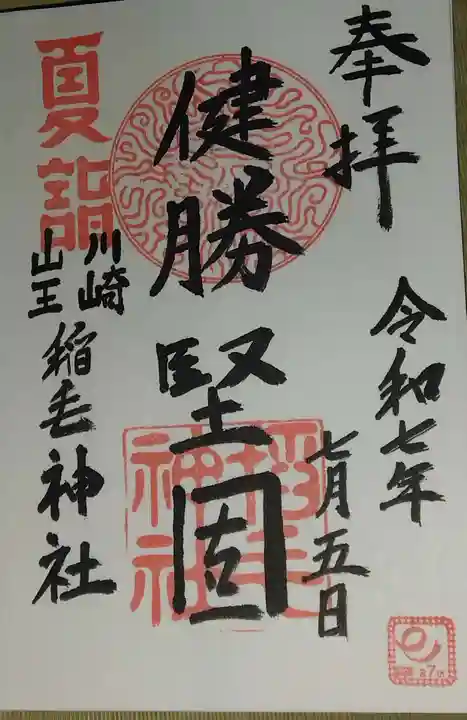 奉拝
令和七年
七月五日
健勝堅固
夏詣
川崎
山王
稲毛神社
稲毛
神社